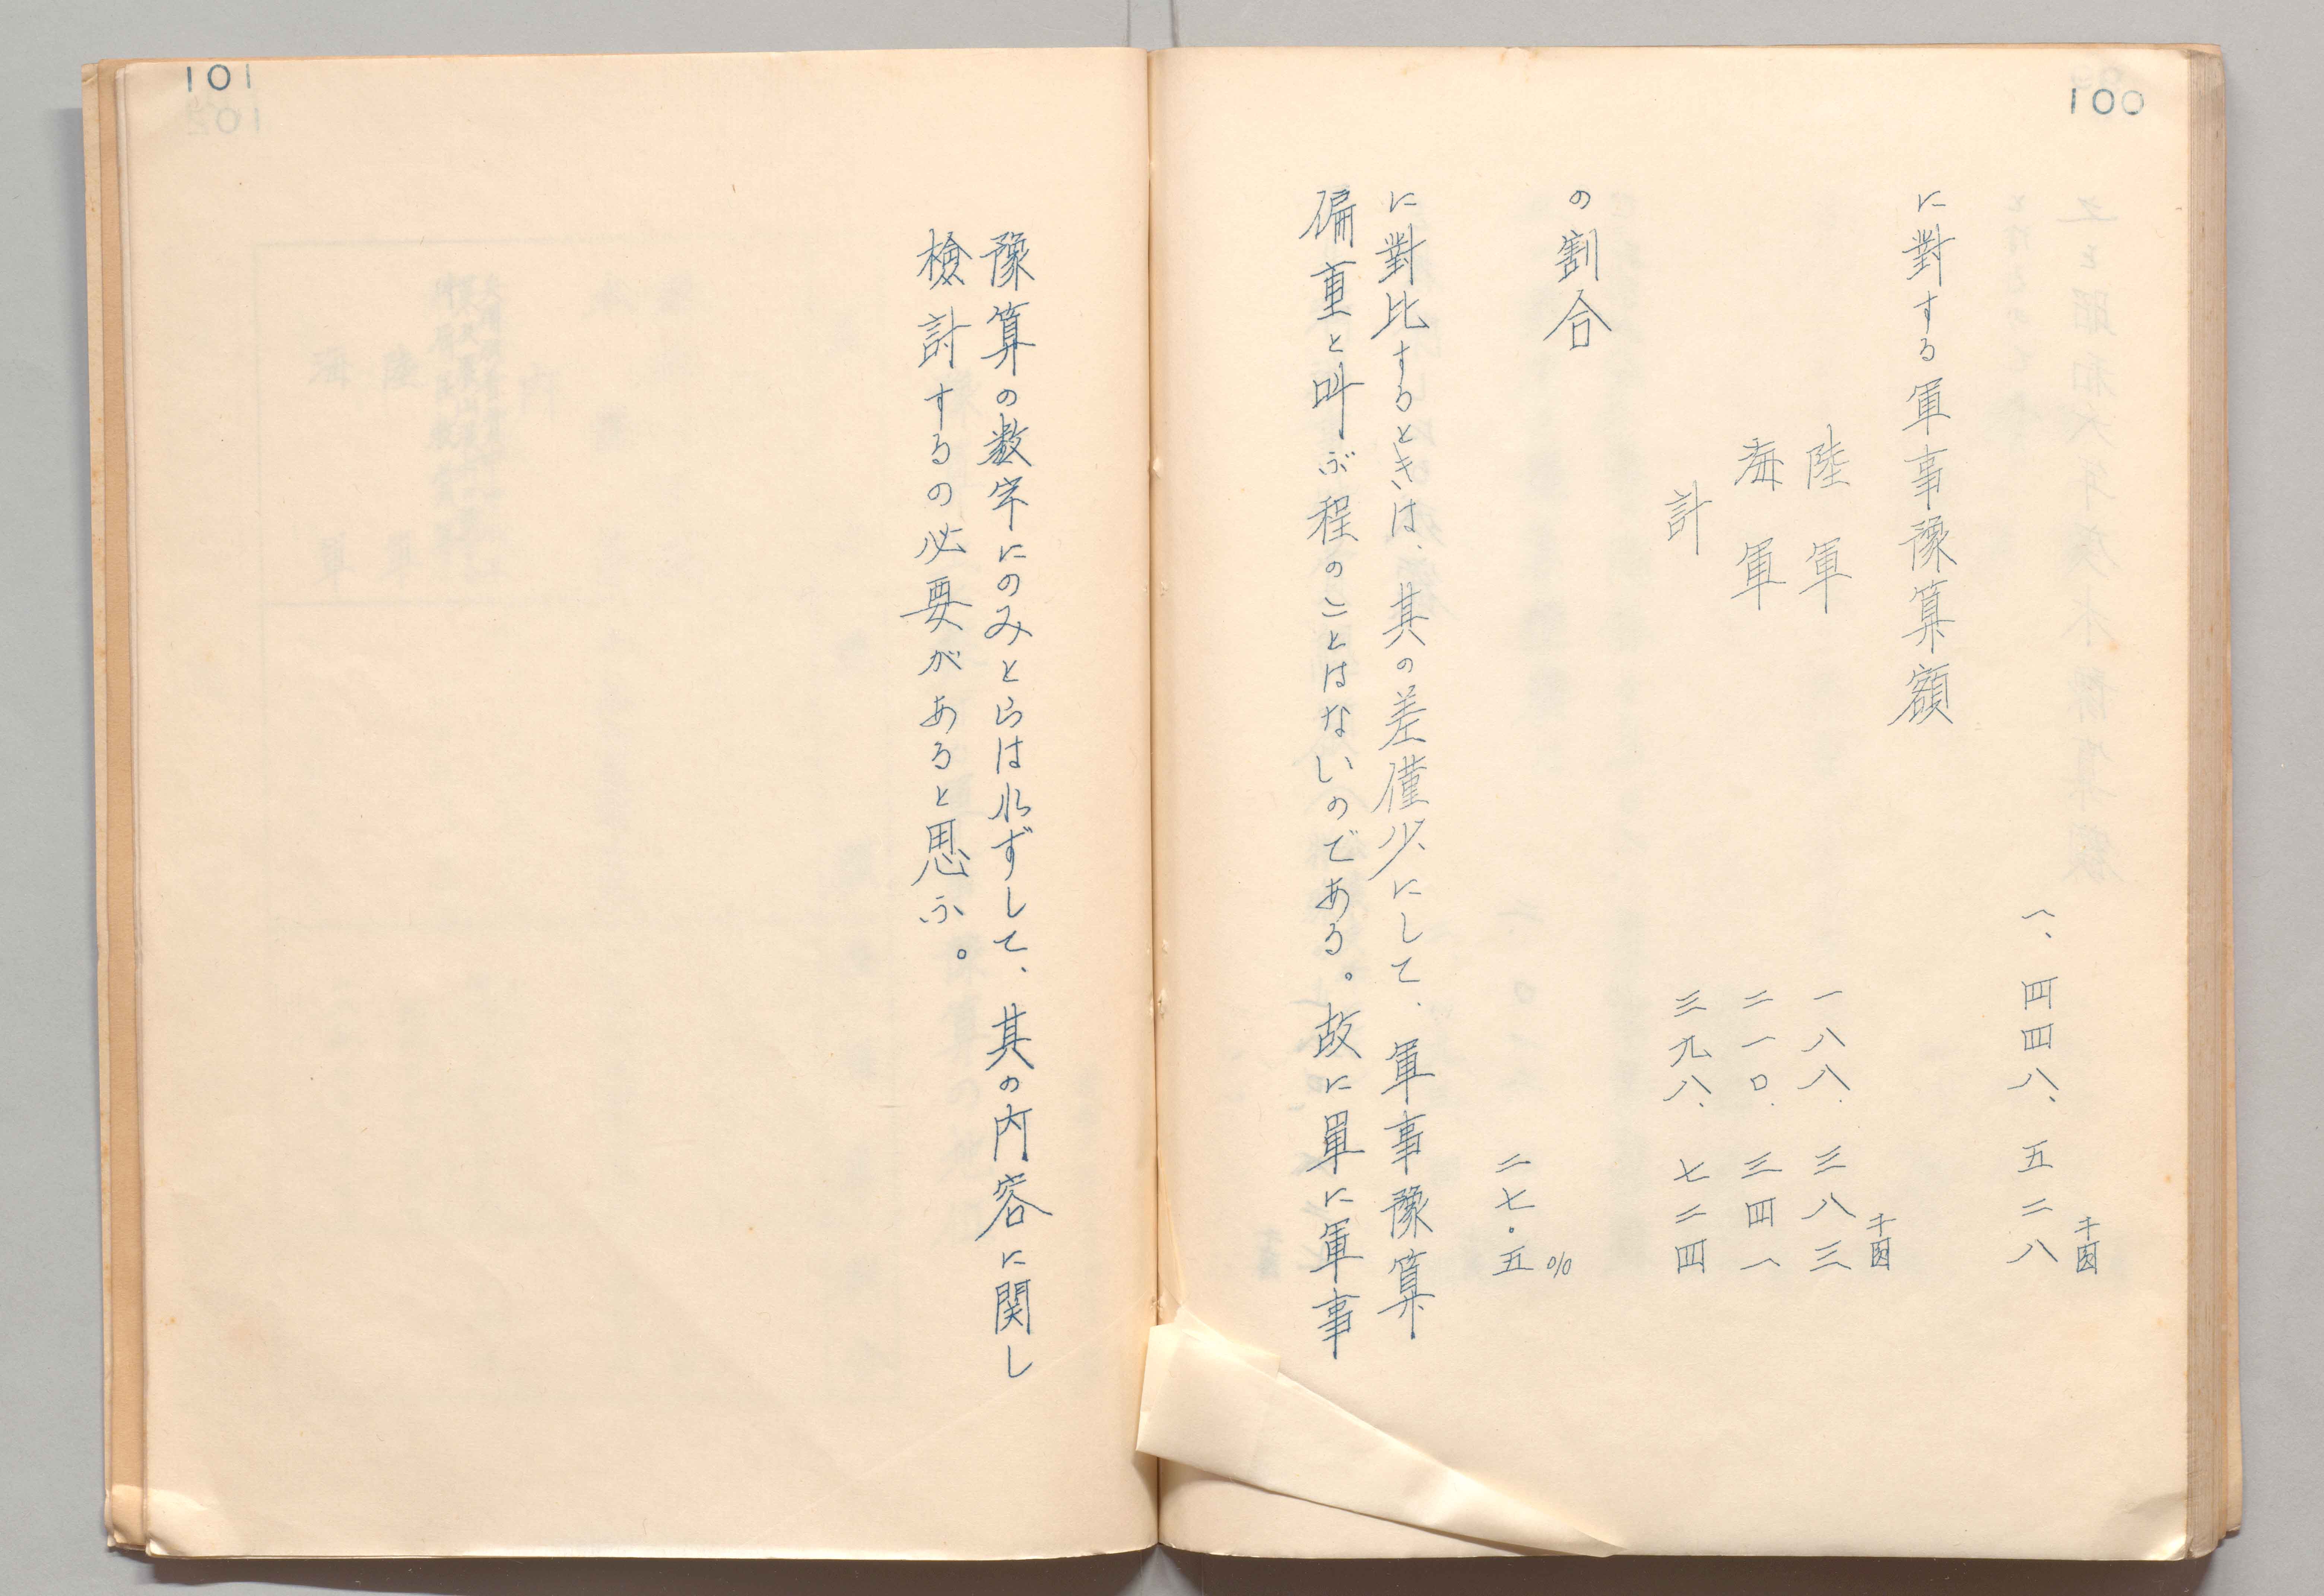 100
千圓
一、四四八、五二八
に對する軍事豫算額
千圓
陸軍 一八八、三八三
海軍 二一〇、三四一
計 三九八、七二四
の割合
%
二七・五
に對比するときは、其の差僅少にして、軍事豫算
偏重と叫ぶ程のことはないのである。故に單に軍事
101
豫算の数字にのみとらはれずして、其の内容に関し
檢討するの必要があると思ふ。